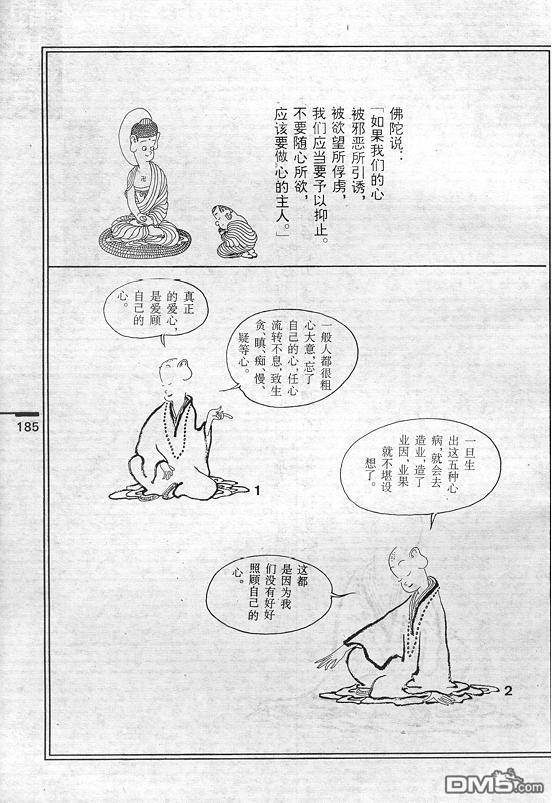 佛陀说：
「如果我们的心
被邪恶所引诱，
被欲望所俘虏，
我们应当要予以抑止。
不要随心所欲，
应该要做心的主人。」
真正
的爱心，
是爱顾
自己的
心。
一般
人都很粗
心大意，忘了
自己的心，任心
流转不息，致生
贪、瞋、痴、慢、
疑等心。
1
185
一旦生
出这五种心
病，就会去
造业，造了
业因，业果
就不堪设
想了。
这都
是因为我
们没有好好
照顾自己的
心。
2
DM5.com